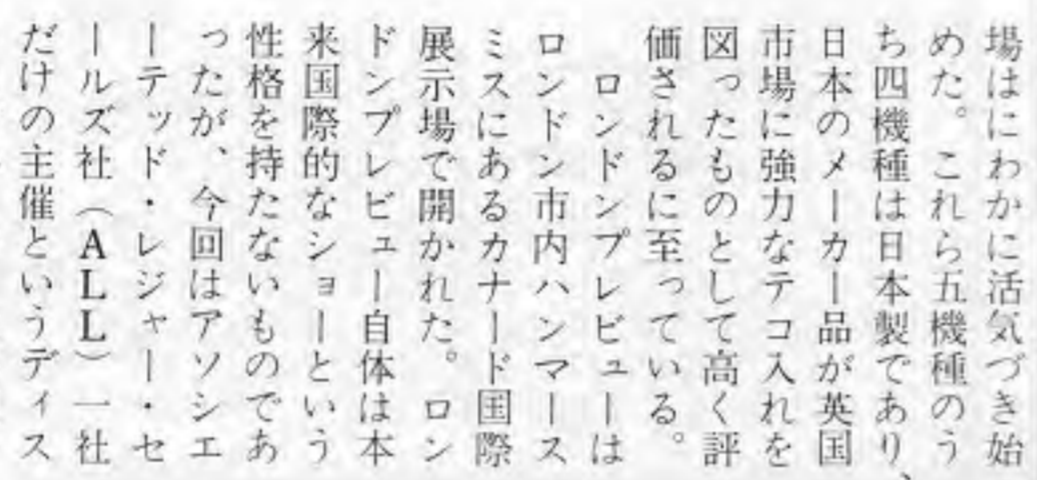 場はにわかに活気づき始
めた。これら五機種のう
ち四機種は日本製であり、
日本のメーカー品が英国
市場に強力なテコ入れを
図ったものとして高く評
価されるに至っている。
ロンドンプレビューは
ロンドン市内ハンマース
ミスにあるカナード国際
展示場で開かれた。ロン
ドンプレビュー自体は本
来国際的なショーという
性格を持たないものであ
ったが、今回はアソシエ
ーテッド・レジャー・セ
ールズ社（ALL）一社
だけの主催というディス